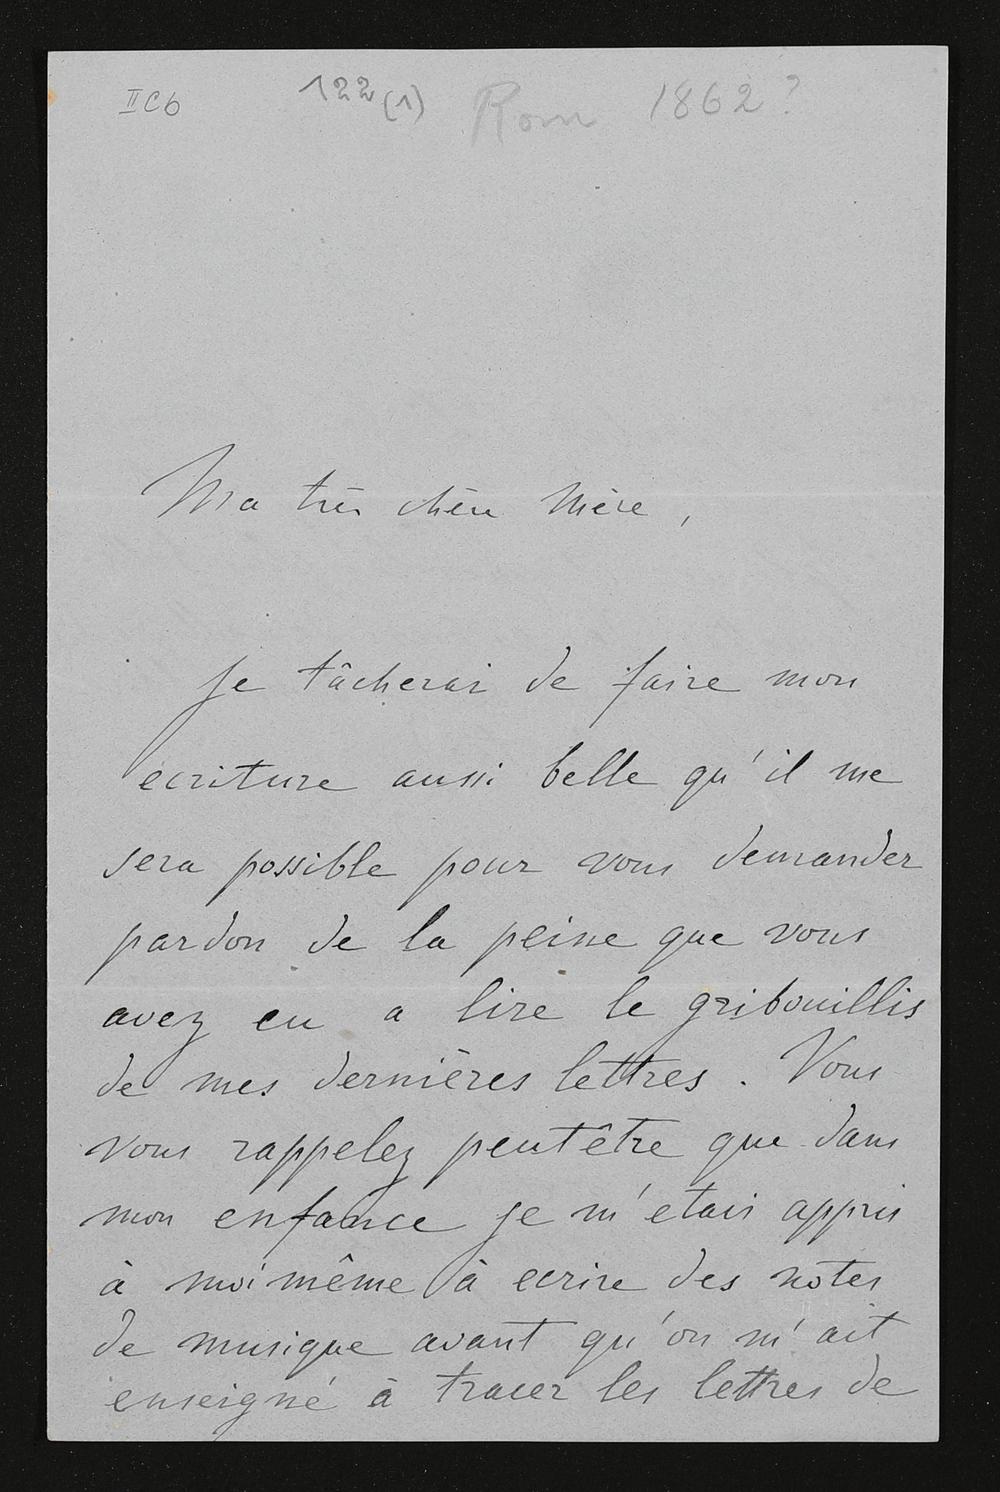 II C 6 122 (1) Rom 1862?
Ma très chère Mère,
Je tâcherai de faire mon
ecriture aussi belle qu'il me
sera possible pour vous demander
pardon de la peine que vous
avez eu a lire le gribouillis
de mes dernières lettres. Vous
vous rappelez peutêtre que dans
mon enfance je m'etais appris
à moi même à ecrire des notes
de musique avant qu'on m'ait
enseigné à tracer les lettres de